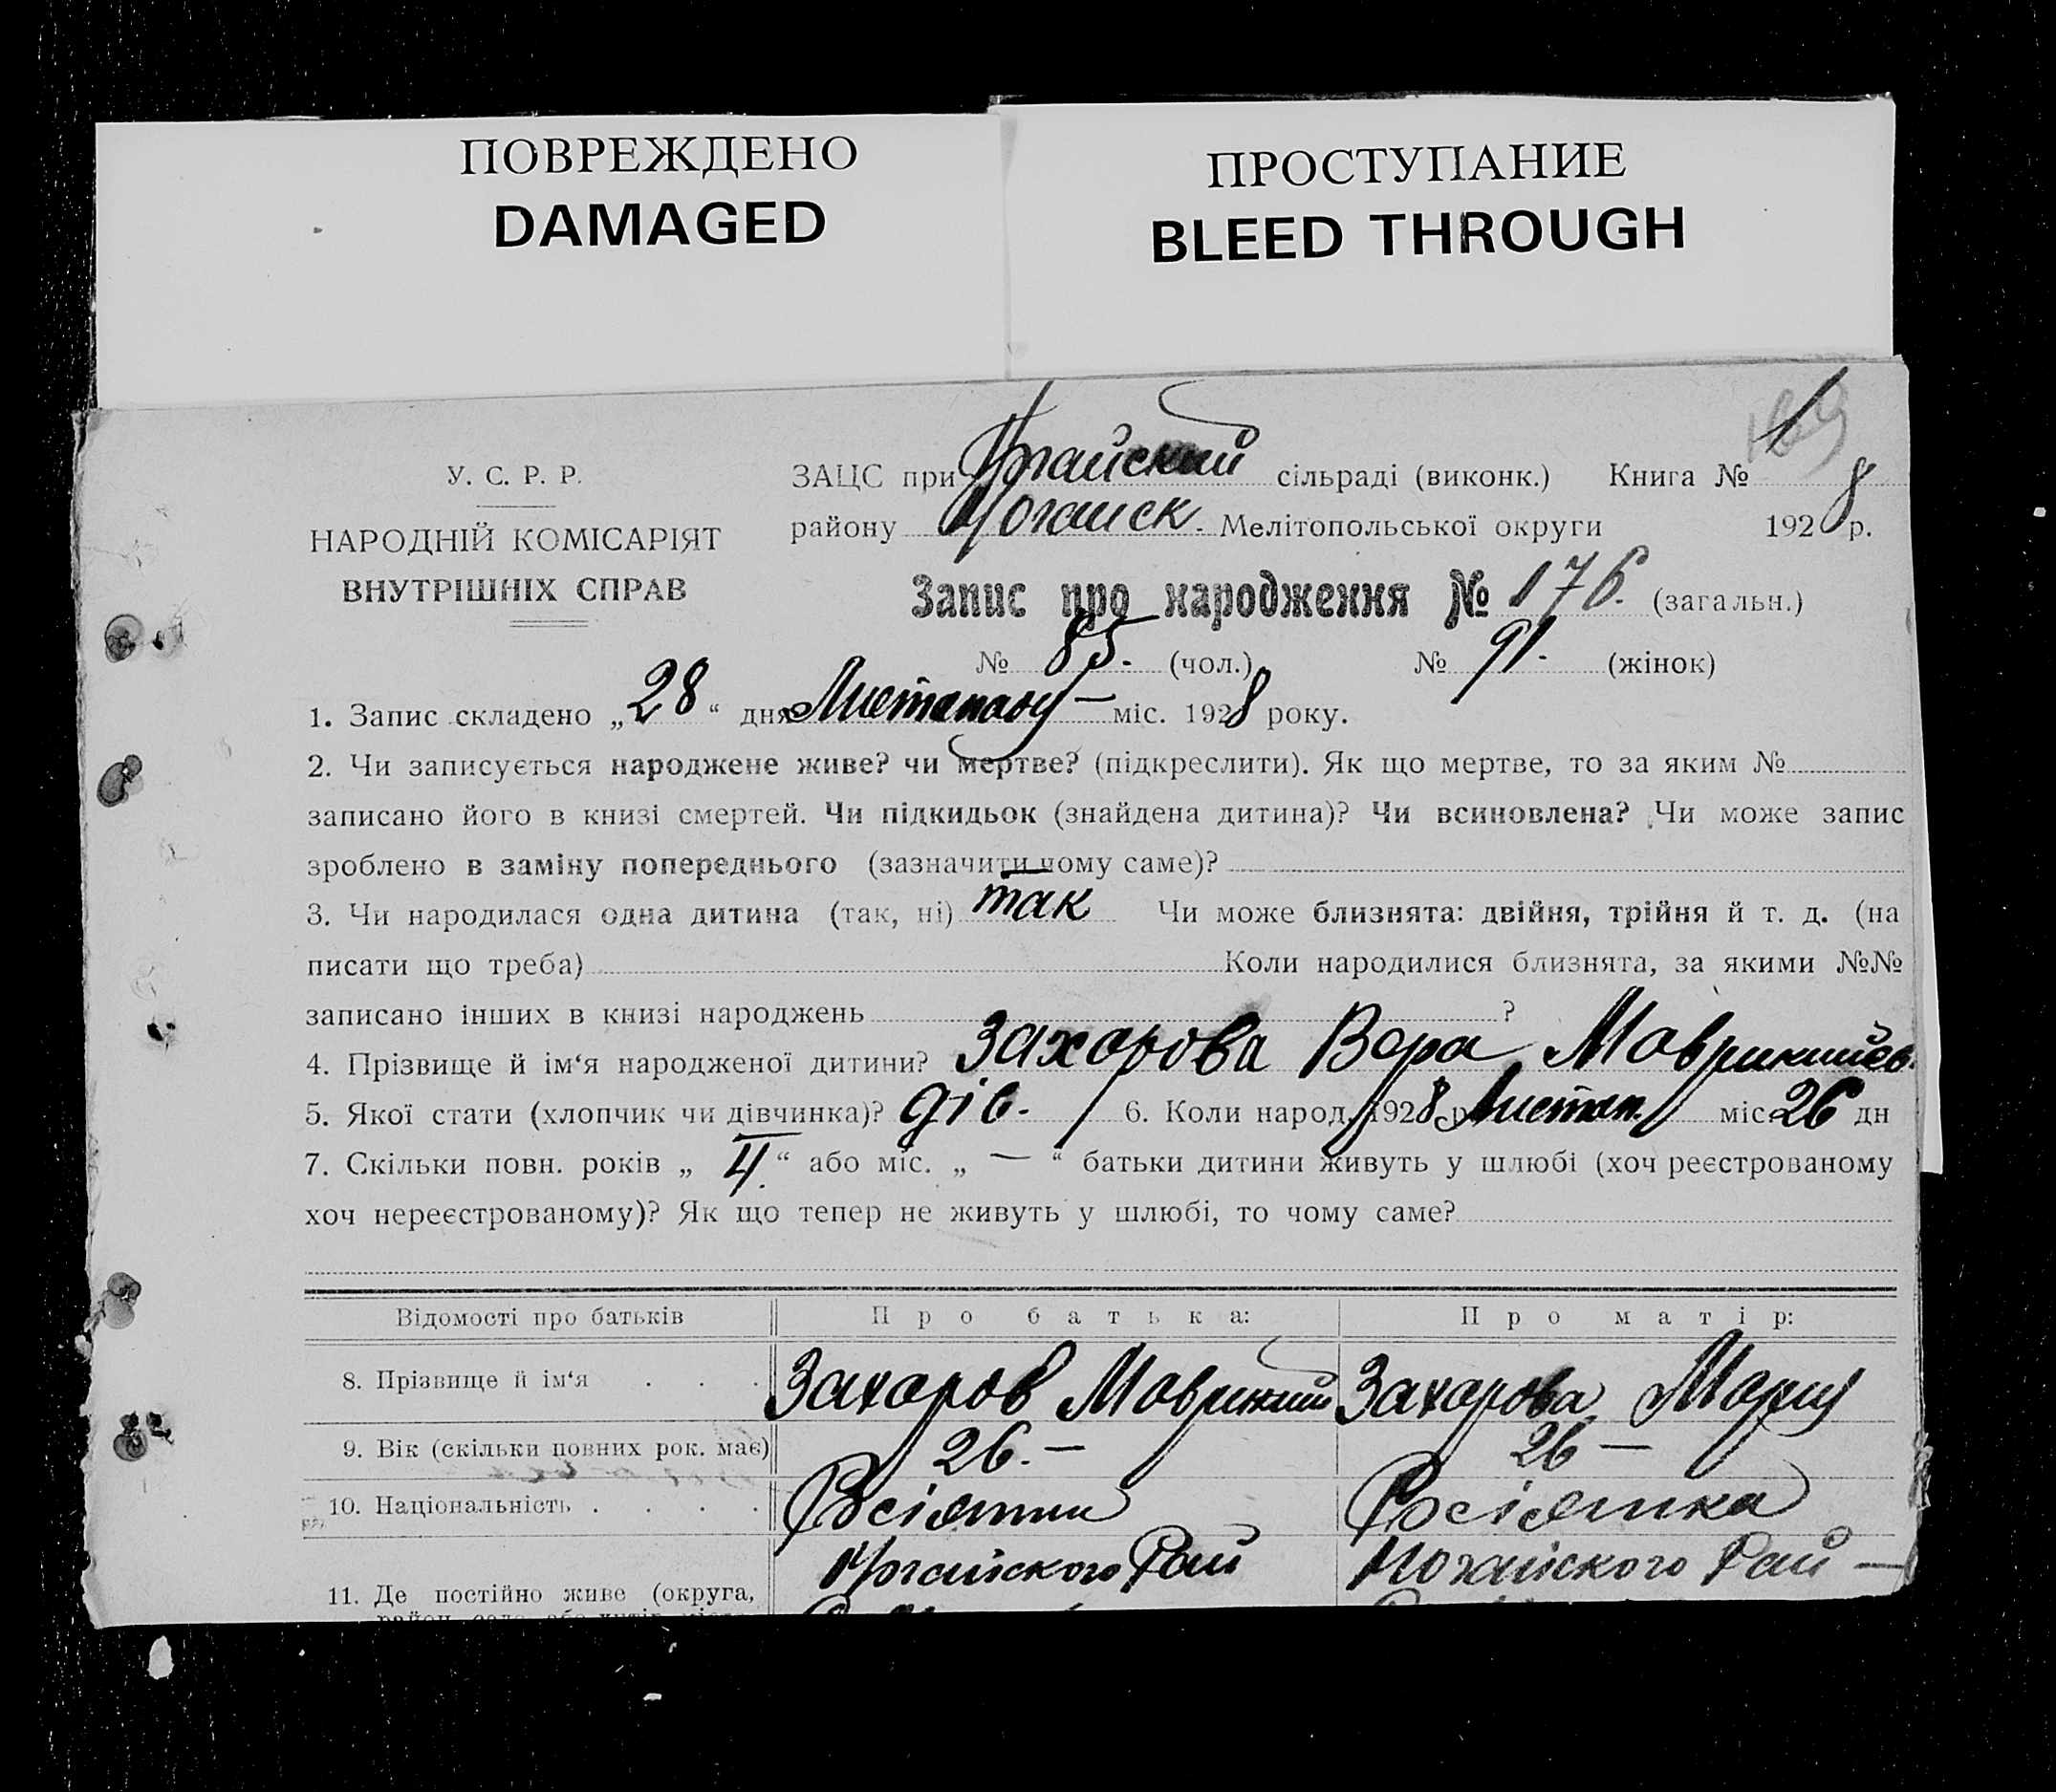 ПОВРЕЖДЕНО
DAMAGED
ПРОСТУПАНИЕ
BLEED THROUGH
169
У. С. Р. Р.
НАРОДНІЙ КОМІСАРІЯТ
ВНУТРІШНІХ СПРАВ
ЗАЦС при Ногайский сільраді (виконк.) Книга № 8
району Ногайск. Мелітопольської округи 1928 р.
Запис про народження № 176. (загальн.)
№ 85. (чол.) № 91. (жінок)
1. Запис складено „28“ дня Листопаду — міс. 1928 року.
2. Чи записується народжене живе? чи мертве? (підкреслити). Як що мертве, то за яким №
записано його в книзі смертей. Чи підкидьок (знайдена дитина)? Чи всиновлена? Чи може запис
зроблено в заміну попереднього (зазначити чому саме)?
3. Чи народилася одна дитина (так, ні) так Чи може близнята: двійня, трійня й т. д. (на
писати що треба) Коли народилися близнята, за якими №№
записано інших в книзі народжень ?
4. Прізвище й ім‘я народженої дитини? Захорова Вера Маврикийев.
5. Якої стати (хлопчик чи дівчинка)? дів. 6. Коли народ. 1928 р. Листоп. міс. 26 дн
7. Скільки повн. років „ II. “ або міс. „ — “ батьки дитини живуть у шлюбі (хоч реєстрованому
хоч нереєстрованому)? Як що тепер не живуть у шлюбі, то чому саме?
Відомості про батьків Про батька: Про матір:
8. Прізвище й ім‘я . . . Захаров Маврикий Захарова Мария
9. Вік (скільки повних рок. має) 26. — 26 —
10. Національність . . . . Росіянин Росіянка
11. Де постійно живе (округа, Ногайского Рай Ногайского Рай —
район, село або хутір, місто